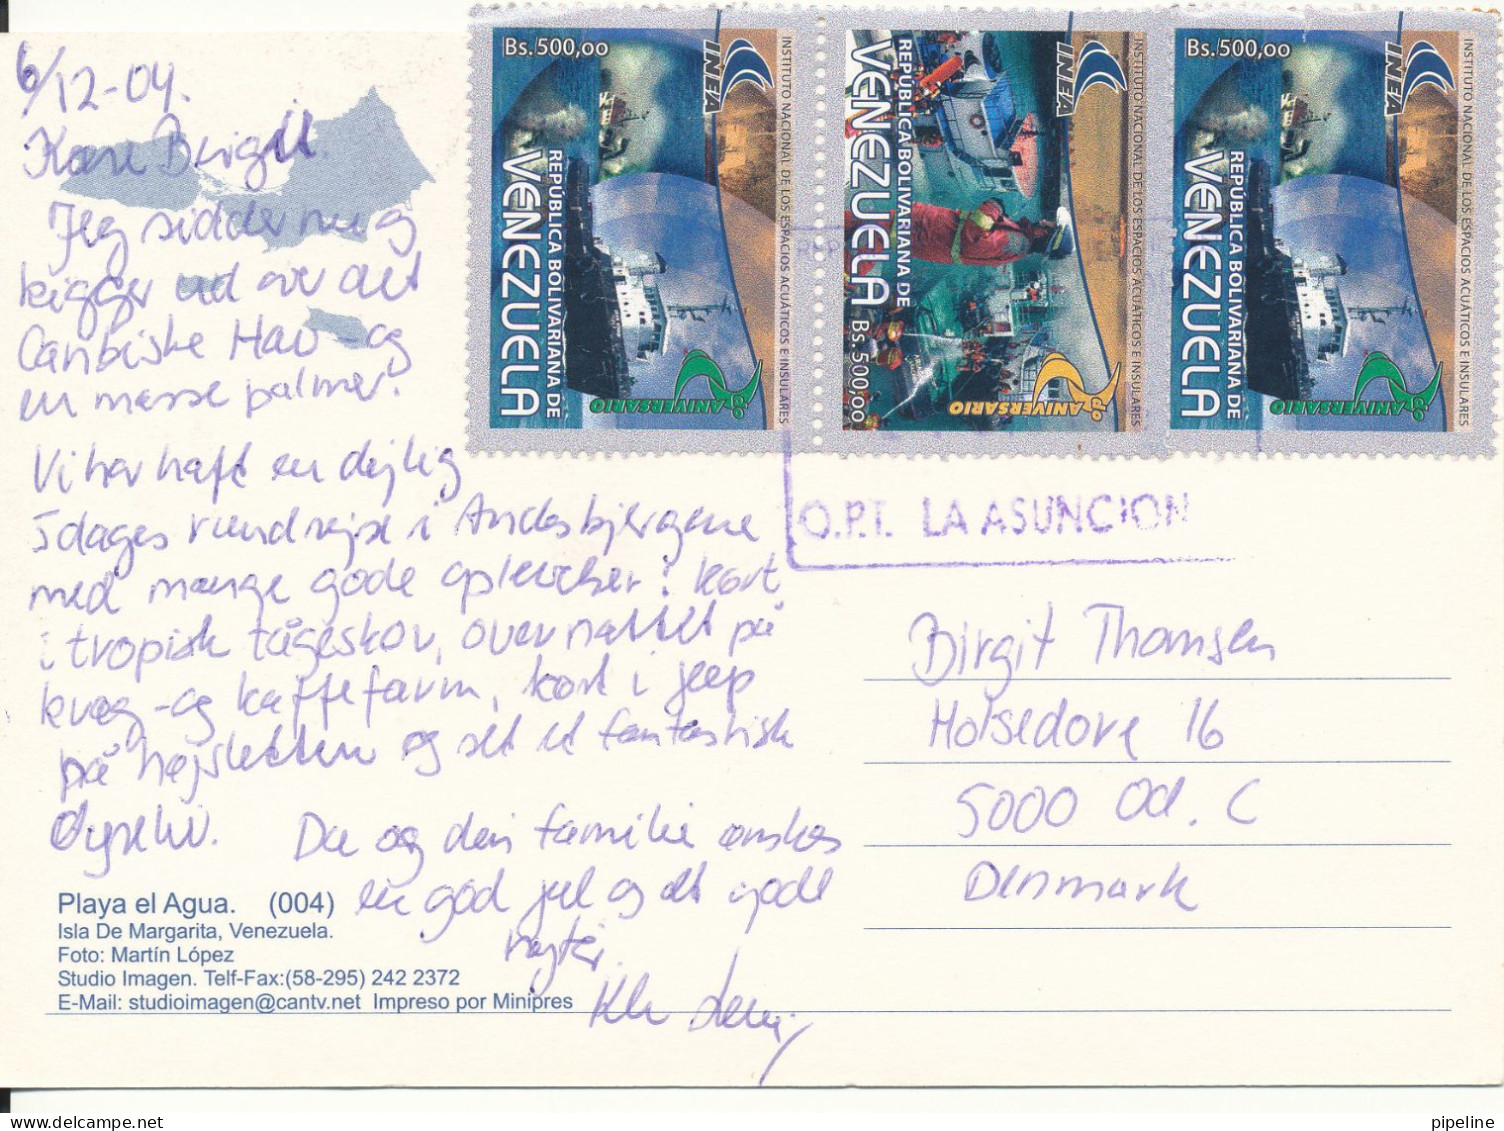 6/12-04.
Kære Birgit
Jeg sidder nu og
kigger ud over det
Caribiske Hav og
en masse palmer.
Vi har haft en dejlig
5 dages rundrejse i Andesbjergene
med mange gode oplevelser: kørt
i tropisk tågeskov, overnattet på
kvæg- og kaffefarm, kørt i jeep
på højsletten og set et fantastisk
dyreliv.
Du og din familie ønskes
en god jul og et godt
nytår.
Kh
Playa el Agua. (004)
Isla De Margarita, Venezuela.
Foto: Martín López
Studio Imagen. Telf-Fax:(58-295) 242 2372
E-Mail: studioimagen@cantv.net Impreso por Minipres
Bs.500,00
INEA
INSTITUTO NACIONAL DE LOS ESPACIOS ACUÁTICOS E INSULARES
REPÚBLICA BOLIVARIANA DE
VENEZUELA
2do ANIVERSARIO
REPÚBLICA BOLIVARIANA DE
VENEZUELA Bs.500,00
INEA
INSTITUTO NACIONAL DE LOS ESPACIOS ACUÁTICOS E INSULARES
2do ANIVERSARIO
Bs.500,00
INEA
INSTITUTO NACIONAL DE LOS ESPACIOS ACUÁTICOS E INSULARES
REPÚBLICA BOLIVARIANA DE
VENEZUELA
2do ANIVERSARIO
O.P.T. LA ASUNCION
Birgit Thomsen
Holsedore 16
5000 Od. C
Denmark
pipeline